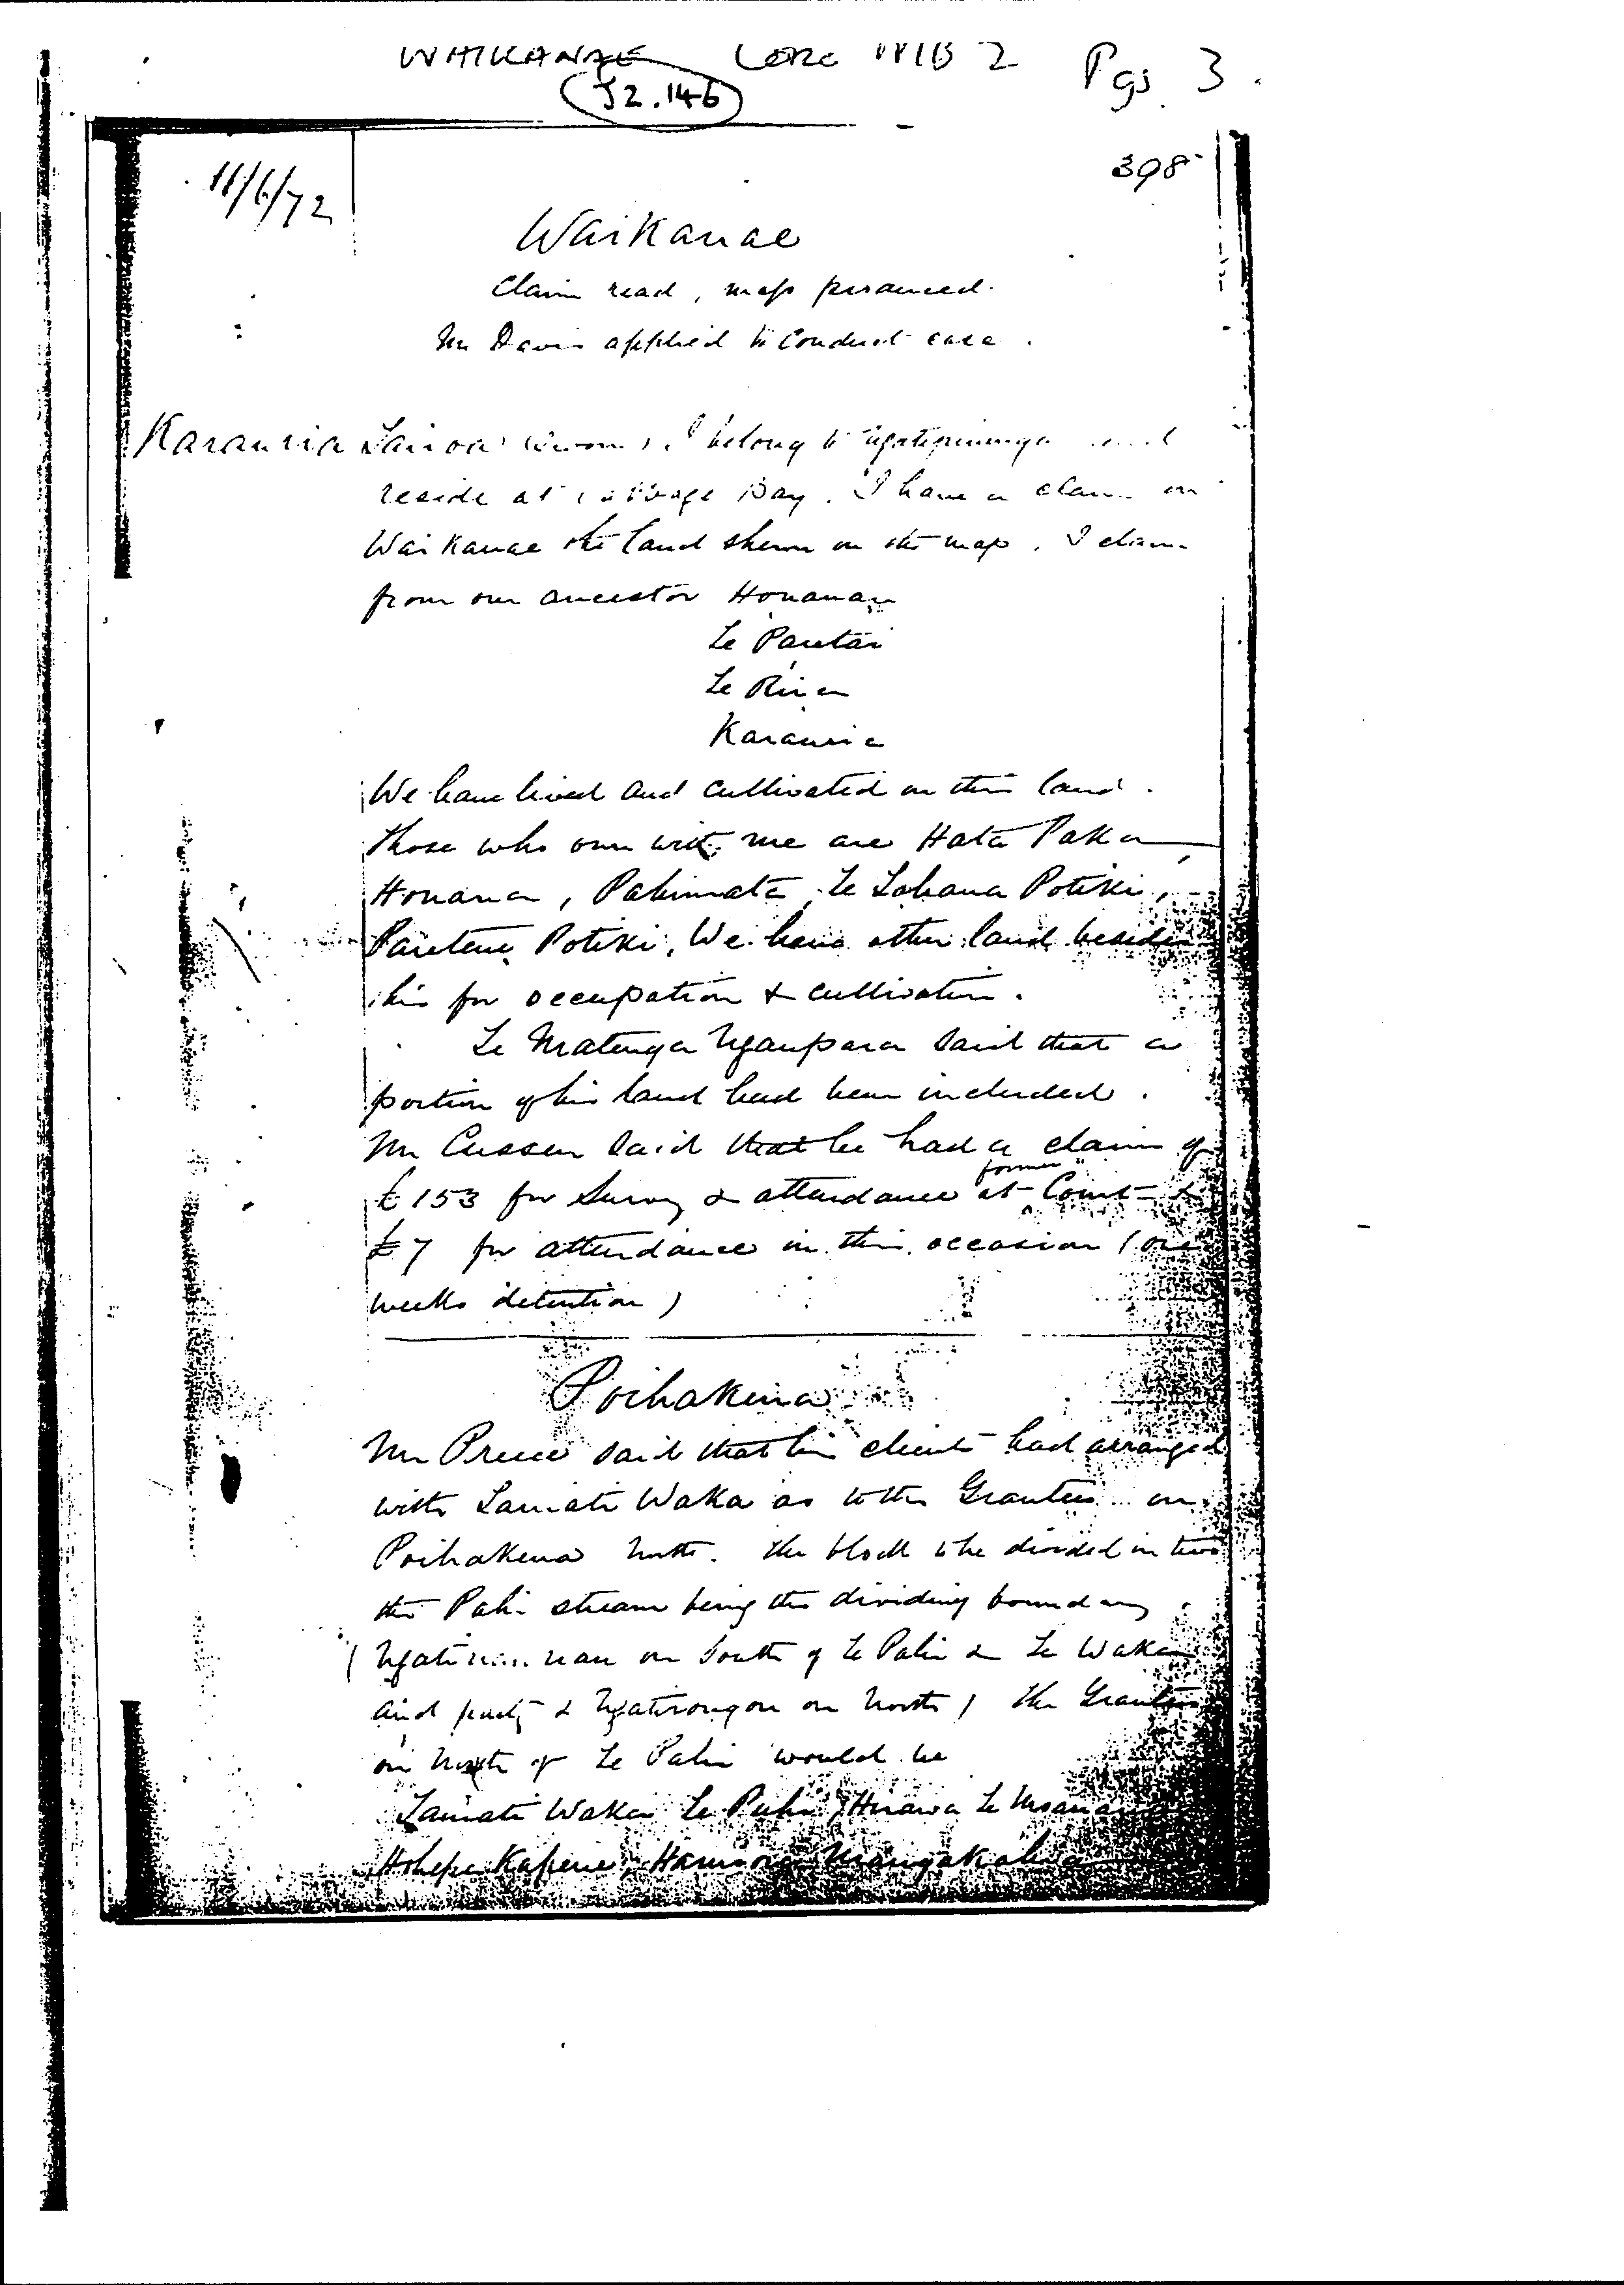 WAIKANAE CORO MB 2 Pgs 3.
S2.146
11/6/72
398
Waikanae
Claim read, map produced.
Mr Davis applied to conduct case.
Karauria Tairoa (sworn). I belong to
reside at Cabbage Bay. I have a claim on
Waikanae the land shewn on the map. I claim
from our ancestor Houauau
Te Pautai
Te Riria
Karauria
We have lived and cultivated on this land.
Those who own with me are Hata Paka,
Honana, Pahimata, Te Tahana Potiki,
Paretene Potiki, We have other land besides
this for occupation & cultivation.
Te Matenga Ngaupara said that a
portion of his land had been included.
Mr Cussen said that he had a claim of
£153 for survey & attendance at former Court &
£7 for attendance on this occasion (one
weeks detention)
Poihakena
Mr Preece said that his clients had arranged
with Tamati Waka as to the Grantees on
Poihakena North. The block to be divided in two
the Pahi stream being the dividing boundary.
(on South of Te Pahi & Te Waka
and party & Ngatirongou on North) the Grantees
on North of Te Pahi would be
Tamati Waka Te Puhi, Hirawa Te Moananui
Hohepa Kapene, Hamiora Mangakahia